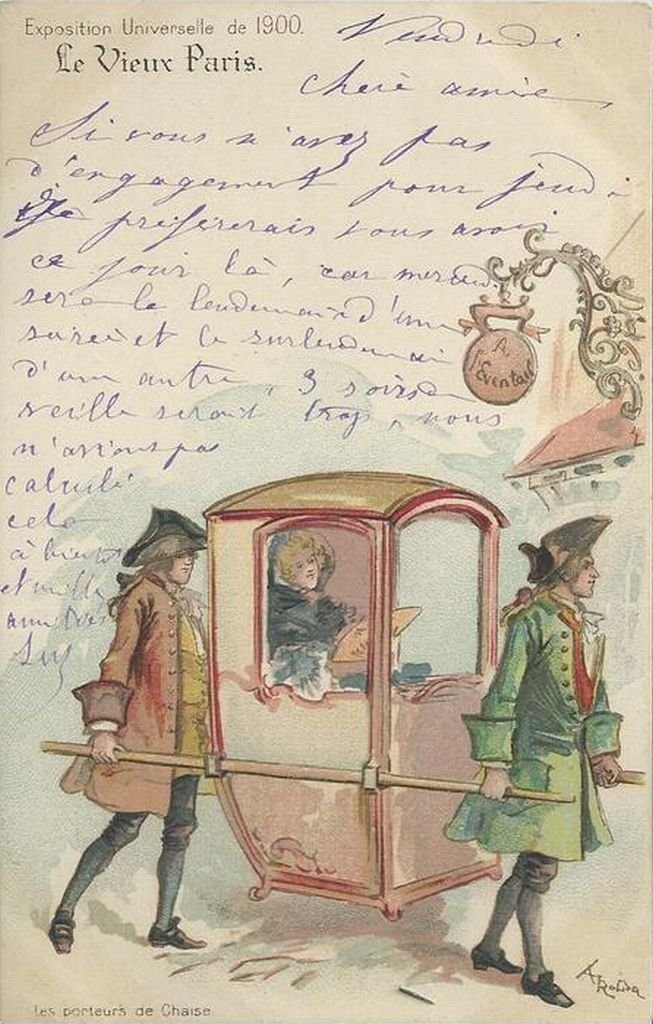 Exposition Universelle de 1900.
Le Vieux Paris.
Vendredi
Chère amie
Si vous n'avez pas
d'engagement pour jeudi
je préférerais vous avoir
ce jour là, car mercredi
sera le lendemain d'une
soirée et le surlendemain
d'une autre, 3 soirs de
veille serait trop, nous
n'avions pas
calculé
cela
à bientôt
et mille
amitiés
A
l'Eventail
A Robida
Les porteurs de Chaise.